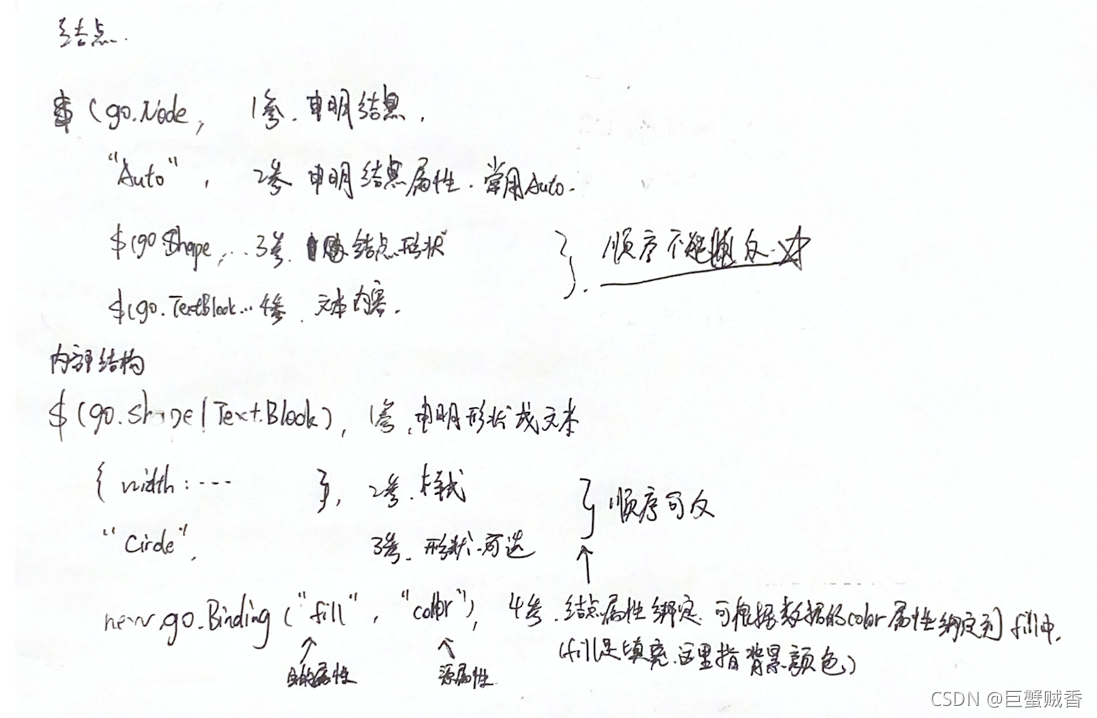 结点.
$ (go.Node, 1参. 申明结点.
"Auto", 2参 申明结点属性. 常用Auto.
$(go.Shape, ... 3参. 结点形状 } 顺序不能反
$(go.TextBlock... 4参. 文本内容.
内部结构
$(go.Shape|TextBlock), 1参, 申明形状或文本
{ width: ... }, 2参. 样式 } 顺序可反
"Circle", 3参. 形状.可选
new.go.Binding ("fill", "color"), 4参. 结点属性绑定. 可根据数据的color属性绑定到fill中.
(fill是填充.这里指背景颜色)
目的属性 源属性.
CSDN @巨蟹贼香